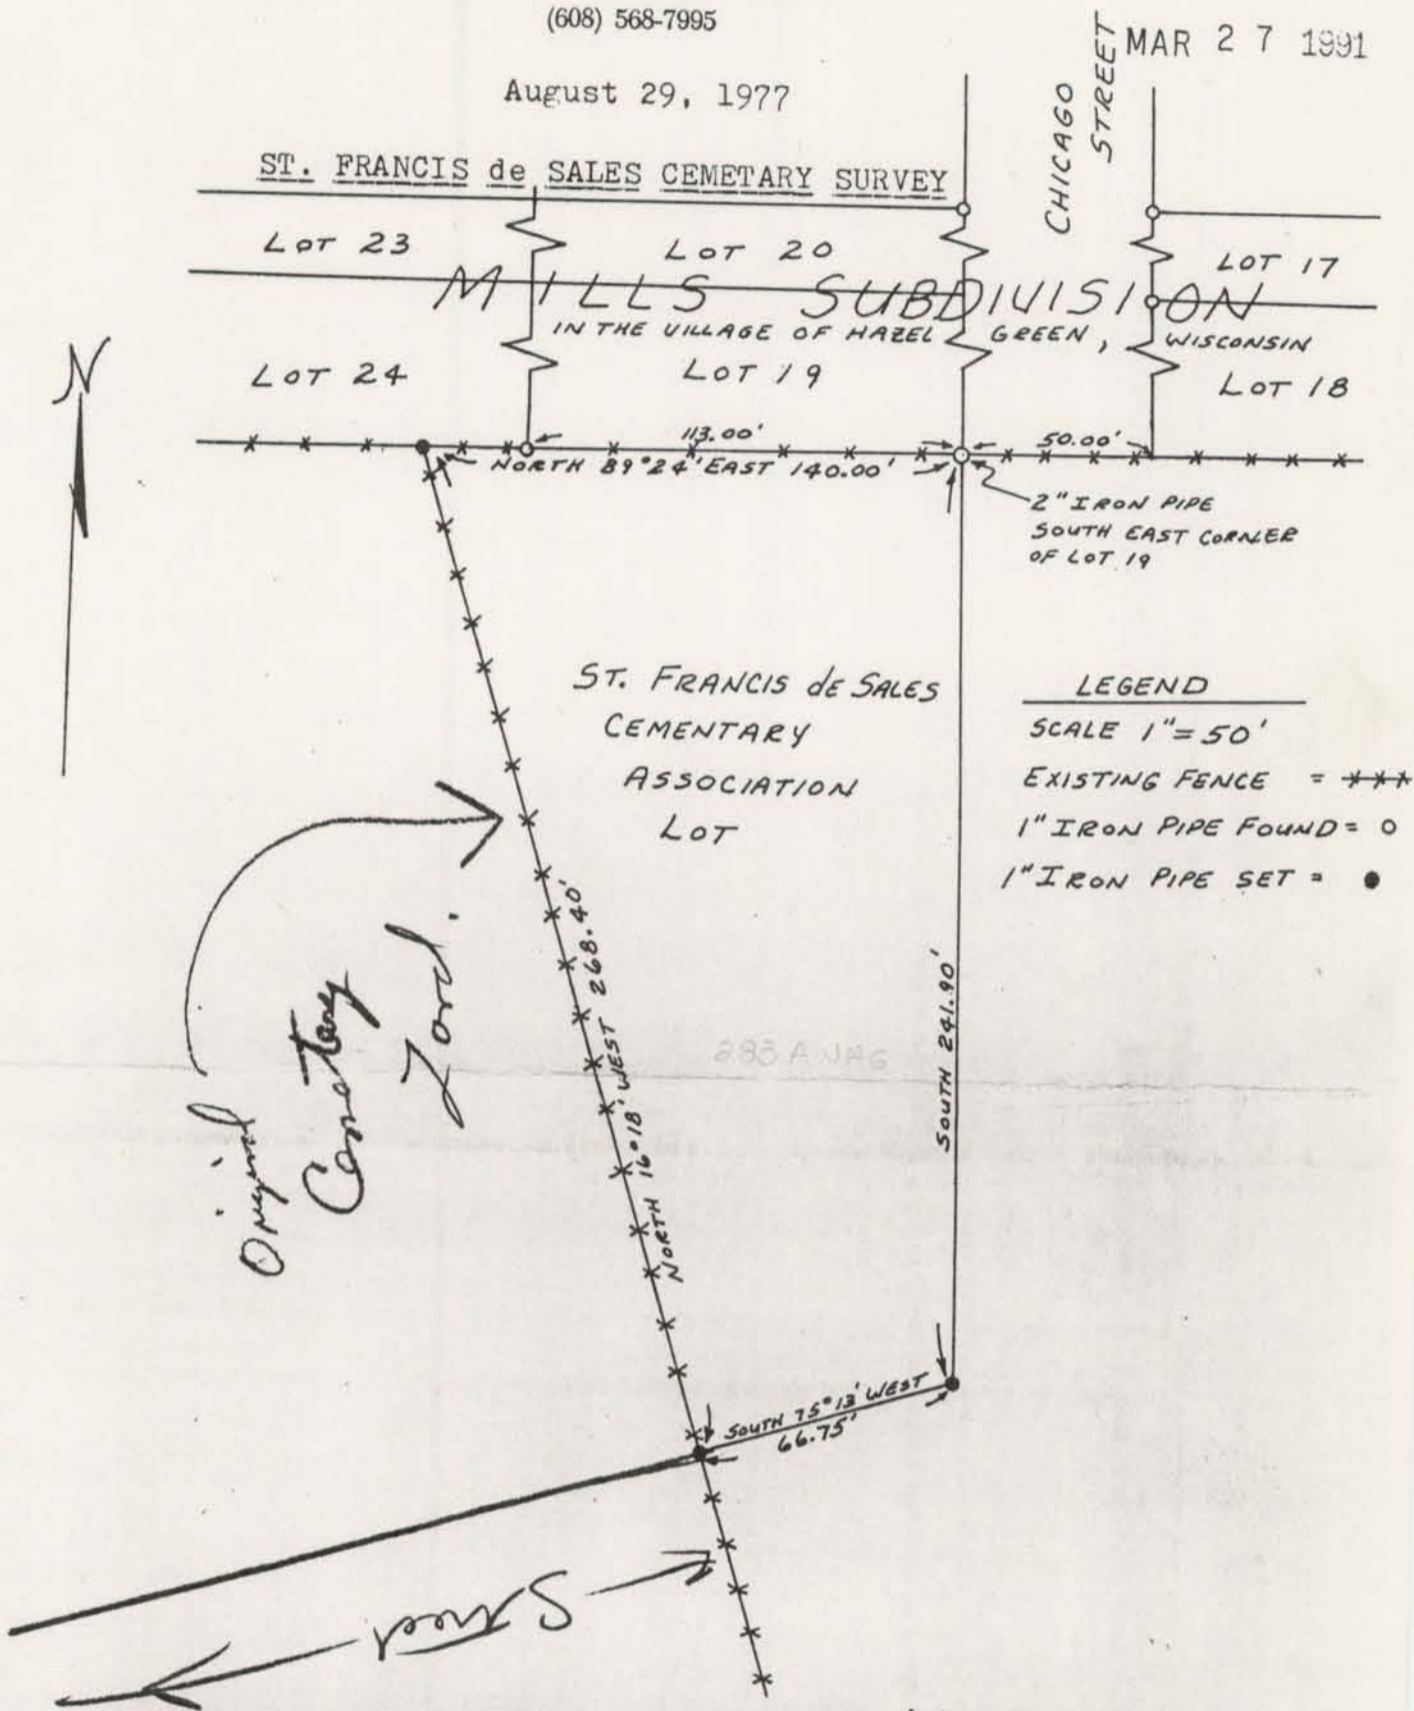 (608) 568-7995
MAR 27 1991
August 29, 1977
CHICAGO
STREET
ST. FRANCIS de SALES CEMETARY SURVEY
LOT 23
LOT 20
LOT 17
MILLS SUBDIVISION
IN THE VILLAGE OF HAZEL GREEN, WISCONSIN
N
LOT 24
LOT 19
LOT 18
113.00'
50.00'
NORTH 89°24' EAST 140.00'
2" IRON PIPE
SOUTH EAST CORNER
OF LOT 19
ST. FRANCIS de SALES
CEMENTARY
ASSOCIATION
LOT
LEGEND
SCALE 1"= 50'
EXISTING FENCE =
1" IRON PIPE FOUND =
1" IRON PIPE SET =
NORTH 16°18' WEST 268.40'
SOUTH 241.90'
Original
Land.
SOUTH 75°13' WEST
66.75'